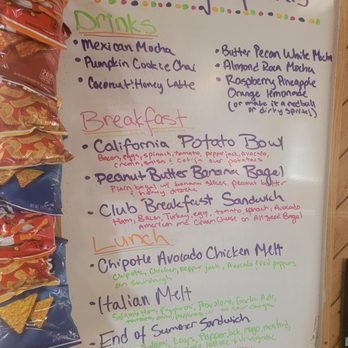 Drinks
• Mexican Mocha
• Pumpkin Cookie Chai
• Coconut Honey Latte
• Butter Pecan White Mocha
• Almond Roca Mocha
• Raspberry Pineapple
Orange lemonade
(or make it a redbull
or dirty sprite!)
Breakfast
• California Potato Bowl
Bacon, eggs, spinach, tomato, pepperjack, avocado,
salsa & potatoes
• Peanut Butter Banana Bagel
Plain bagel w/ banana slices, peanut butter
honey drizzle
• Club Breakfast Sandwich
Ham, Bacon, Turkey, egg, tomato, spinach, Avocado
American and Cream Cheese on Bagel
Lunch
• Chipotle Avocado Chicken Melt
Chipotle, Chicken, Pepper jack, Avocado
on Sourdough
• Italian Melt
Pepperoni, Provolone, Garlic Aoli,
• End of Summer Sandwich
Pepperjack, mayo, mustard,